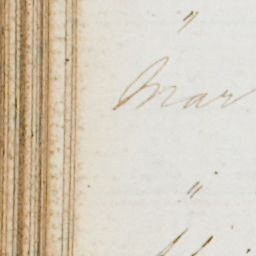 "
Mar
"